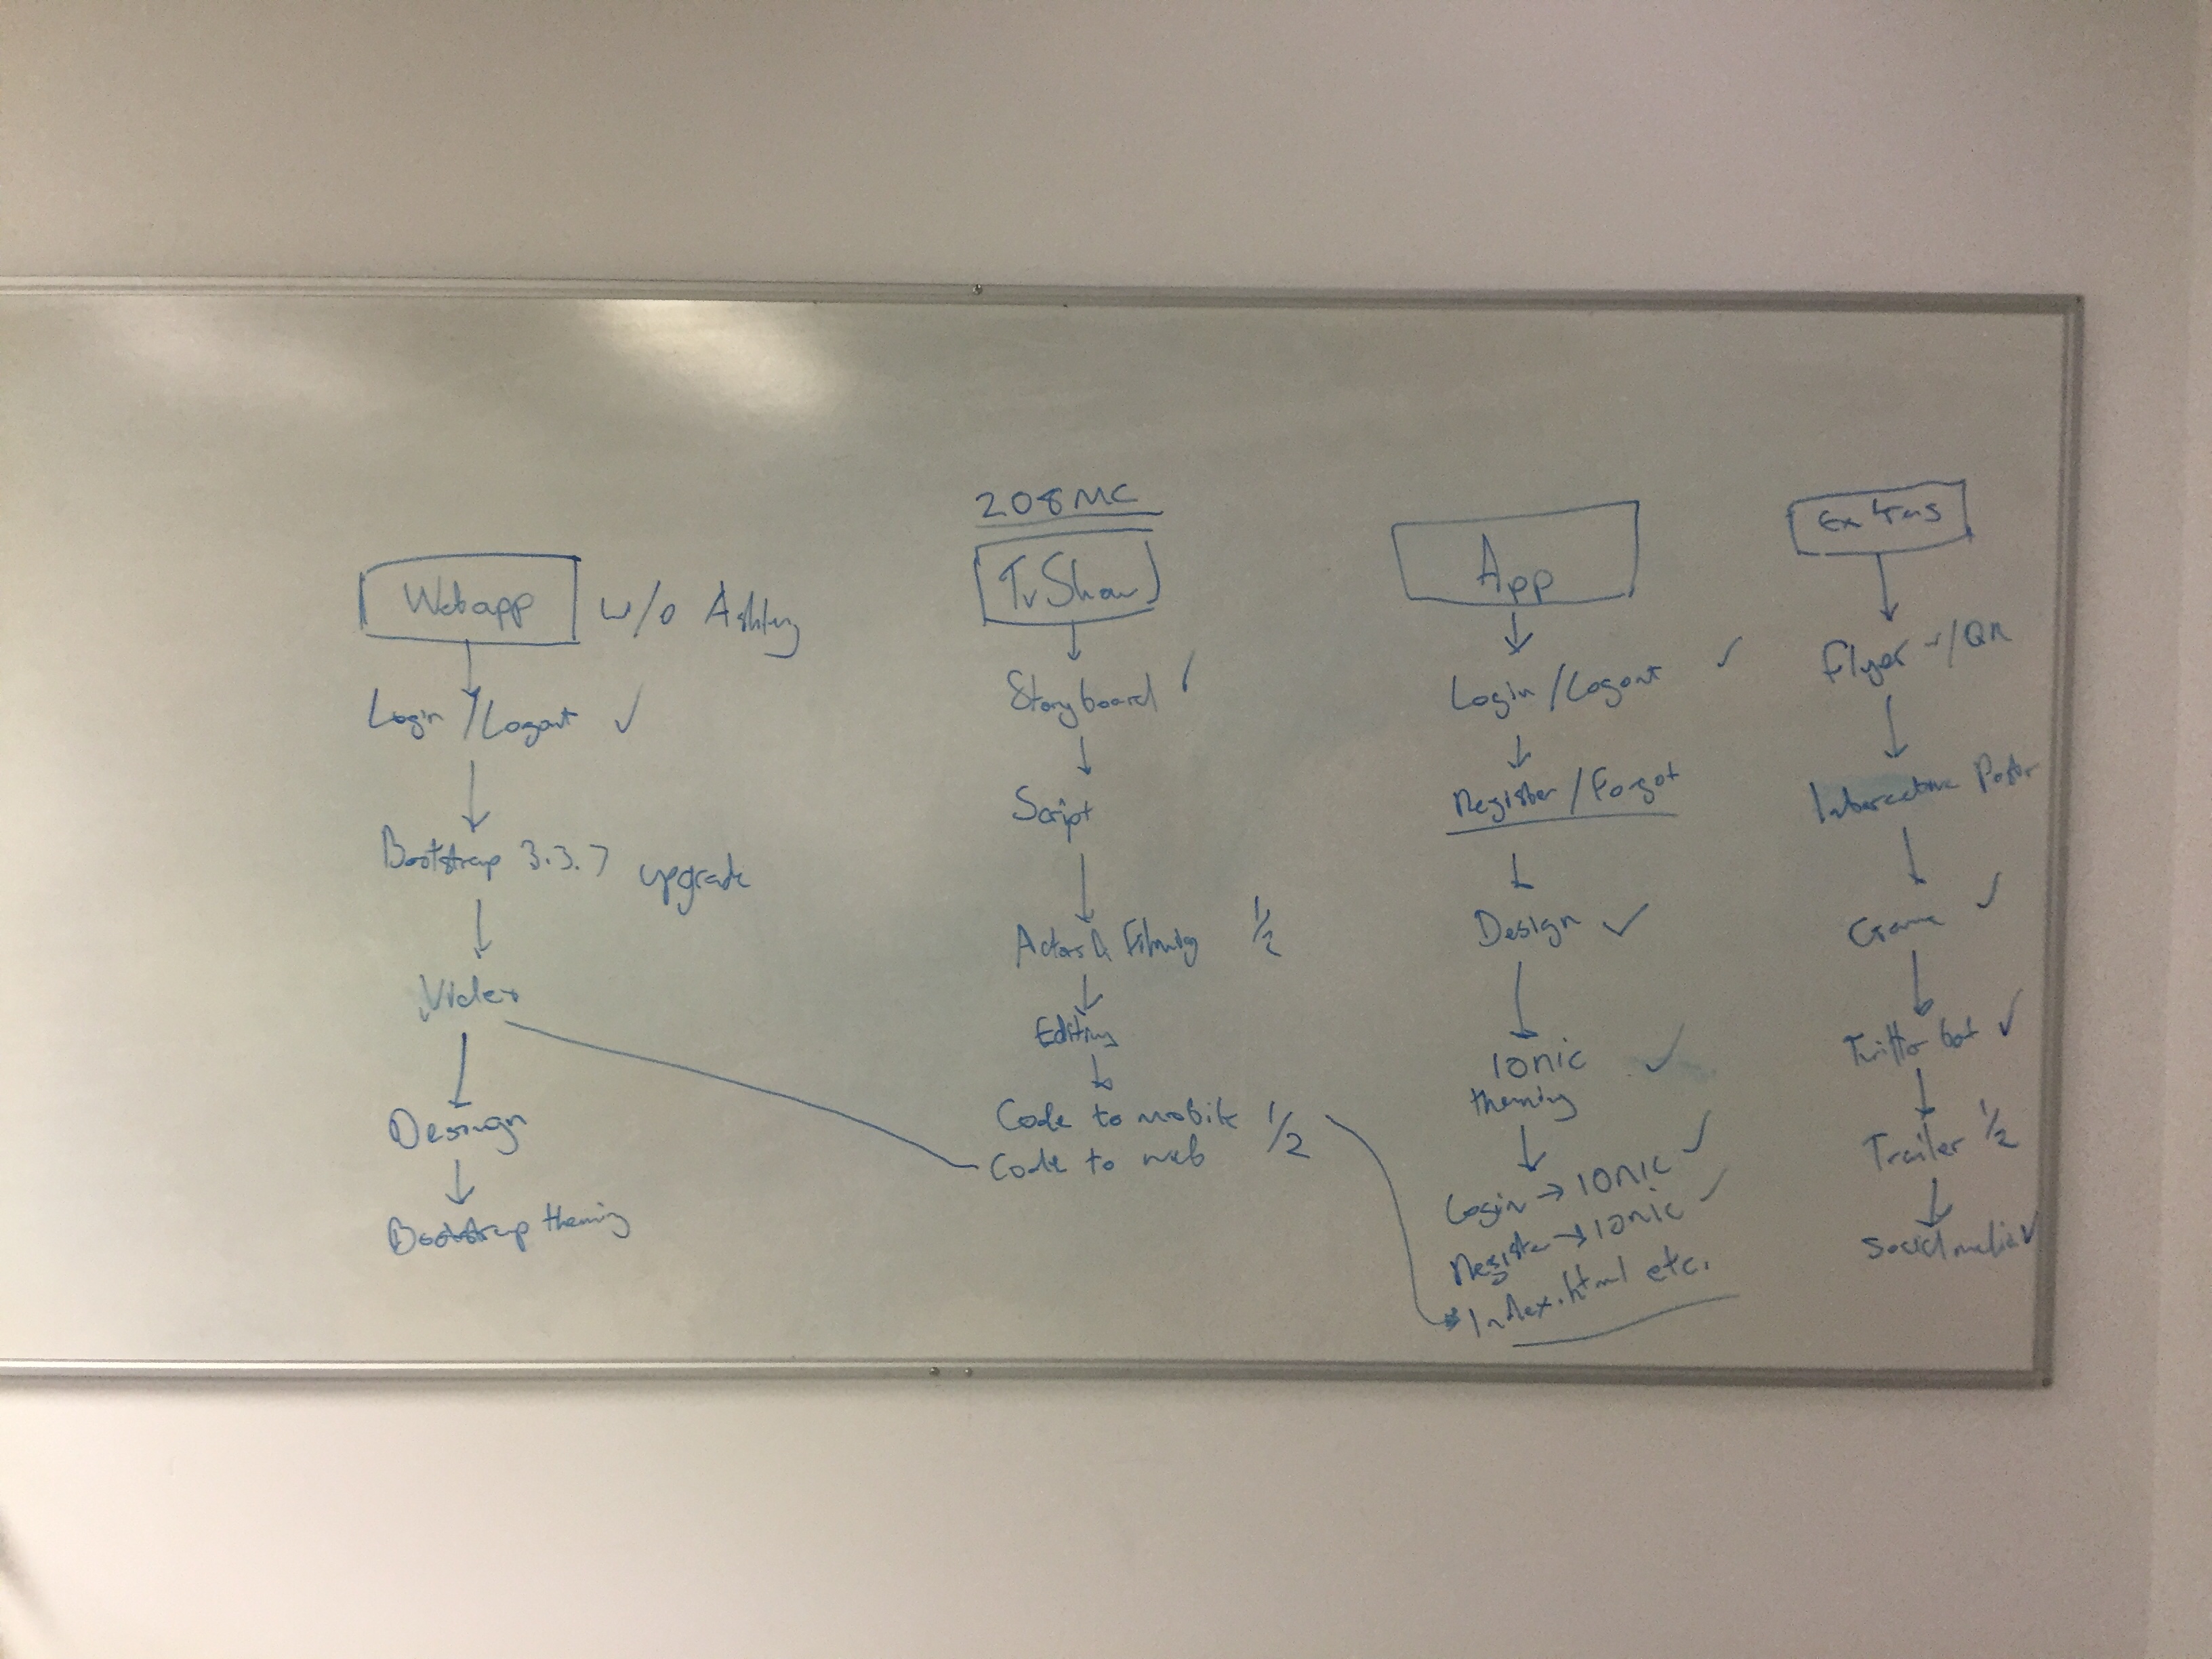 208MC
Webapp w/o Ashley
Login/Logout ✓
Bootstrap 3.3.7 upgrade
Video
Design
Bootstrap theming
Tv Show
Storyboard ✓
Script
Actors & Filming 1/2
Editing
Code to mobile 1/2
Code to web
App
Login/Logout ✓
Register/Forgot
Design ✓
IONIC ✓
theming
Login → IONIC ✓
Register → IONIC ✓
Index.html etc.
Extras
Flyer w/QR
Interactive Poster
Game ✓
Twitter bot ✓
Trailer 1/2
Social media ✓